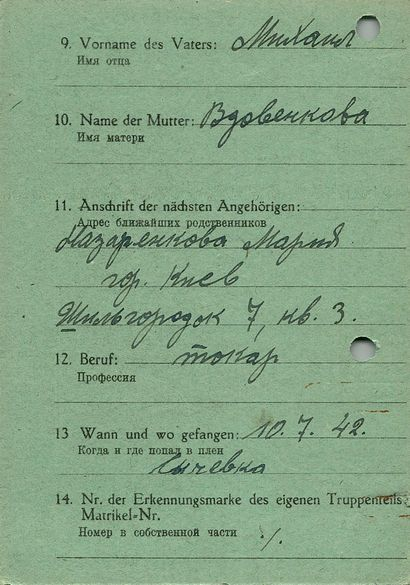 9. Vorname des Vaters: Михаил
Имя отца
10. Name der Mutter: Вдовенкова
Имя матери
11. Anschrift der nächsten Angehörigen:
Адрес ближайших родственников
Назаренкова Мария
гор. Киев
Шильгородок 7, кв. 3.
12. Beruf: токар
Профессия
13 Wann und wo gefangen: 10. 7. 42.
Когда и где попал в плен
Сычевка
14. Nr. der Erkennungsmarke des eigenen Truppenteils:
Matrikel-Nr.
Номер в собственной части ./.